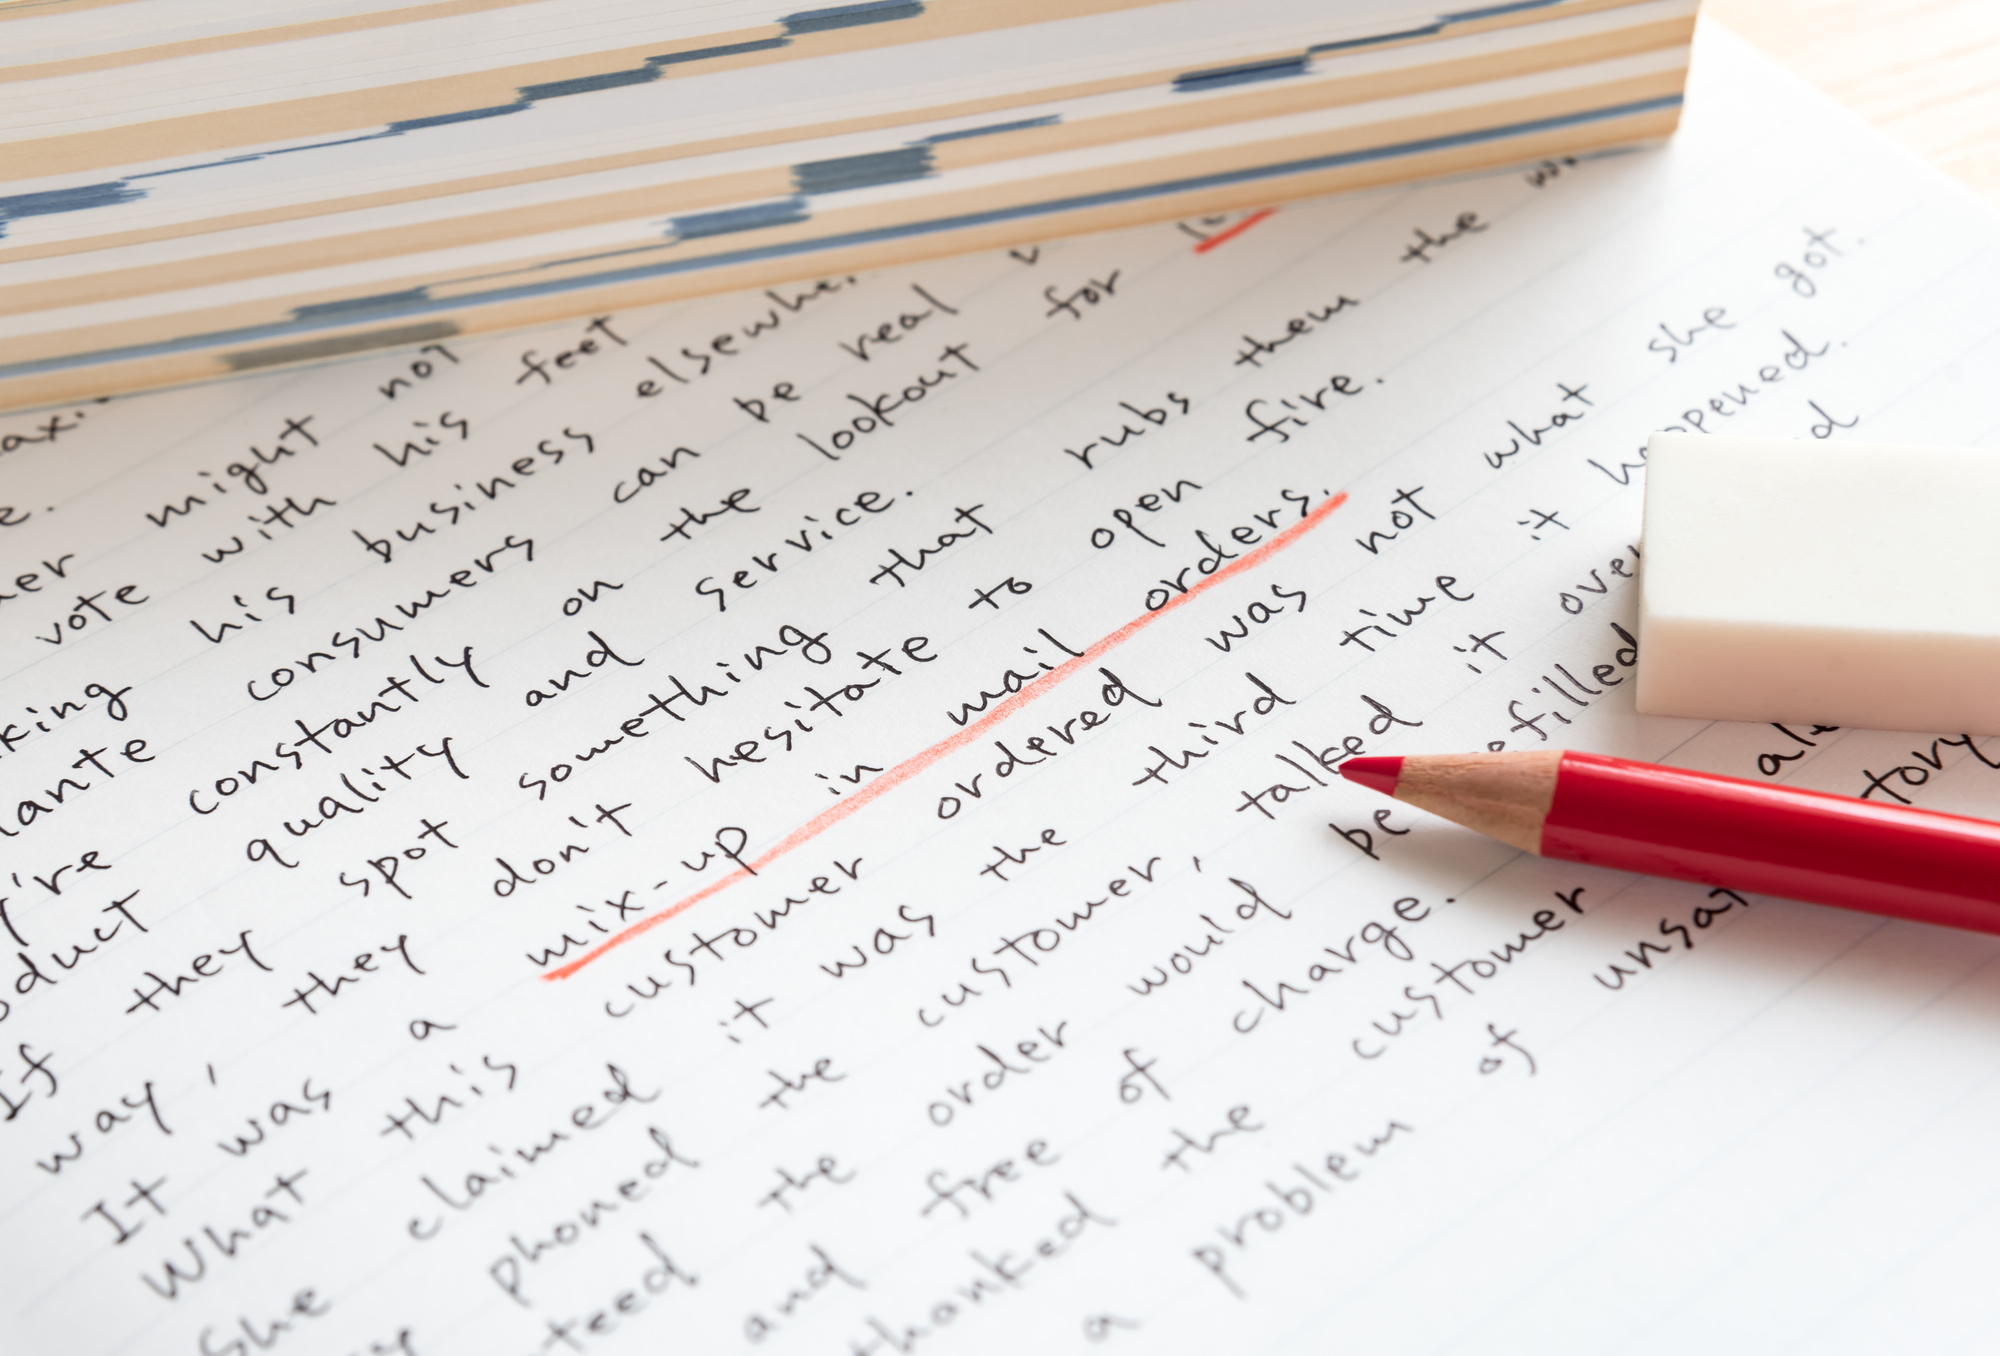 might not
vote with his feet
his business
consumers can be real
constantly on the lookout for
quality and service.
If they spot something that rubs them the
way, they don't hesitate to open fire.
It was a mix-up in mail orders.
What this customer ordered was not what she got.
She claimed it was the third time it happened.
phoned the customer, talked it over
the order would be refilled
and free of charge.
thanked the customer
a problem of